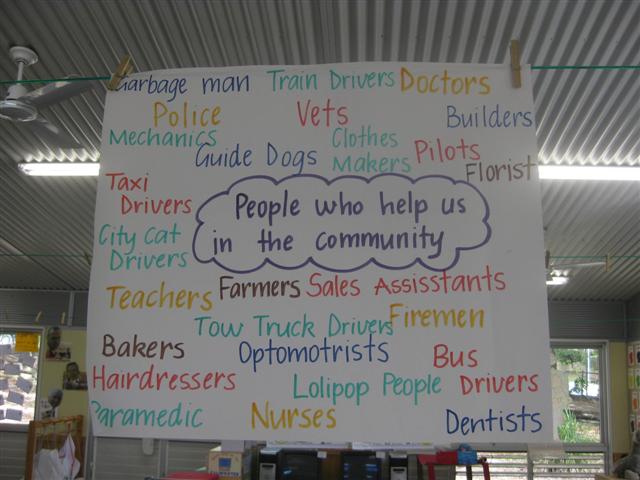 Garbage man Train Drivers Doctors
Police Vets Builders
Mechanics Clothes
Guide Dogs Makers Pilots
Florist
Taxi
Drivers
People who help us
in the community
City Cat
Drivers
Teachers Farmers Sales Assisstants
Tow Truck Drivers Firemen
Bakers Optomotrists Bus
Hairdressers Lolipop People Drivers
Paramedic Nurses Dentists